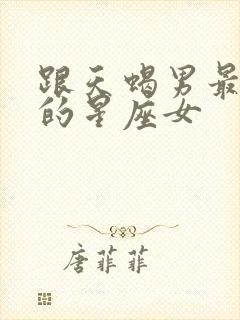 跟天蝎男最
的星座女
唐菲菲